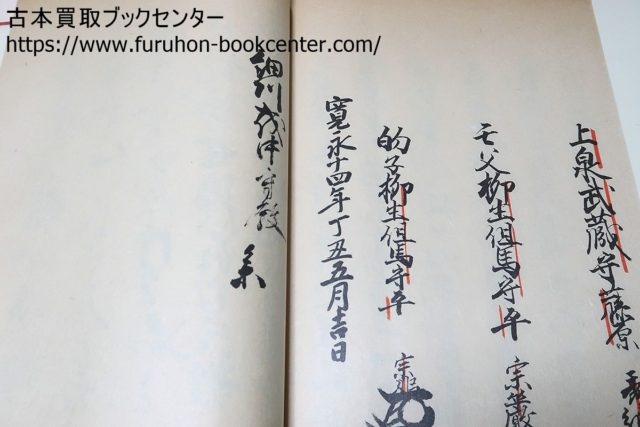 古本買取ブックセンター
https://www.furuhon-bookcenter.com/
上泉武蔵守藤原
亡父柳生但馬守平
宗嚴
的子柳生但馬守平
寛永十四年丁丑五月吉日
細川越中守殿
参